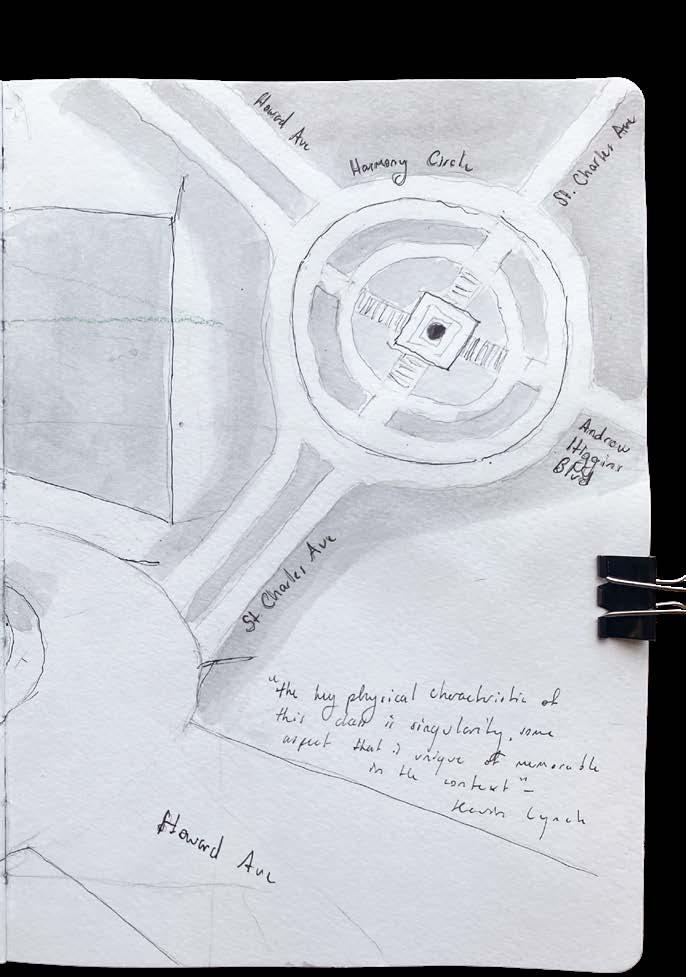 Howard Ave
Harmony Circle
St. Charles Ave
Andrew
Higgins
Blvd
St Charles Ave
"the key physical characteristic of
this class is singularity, some
aspect that is unique or memorable
in the context" -
Kevin Lynch
Howard Ave